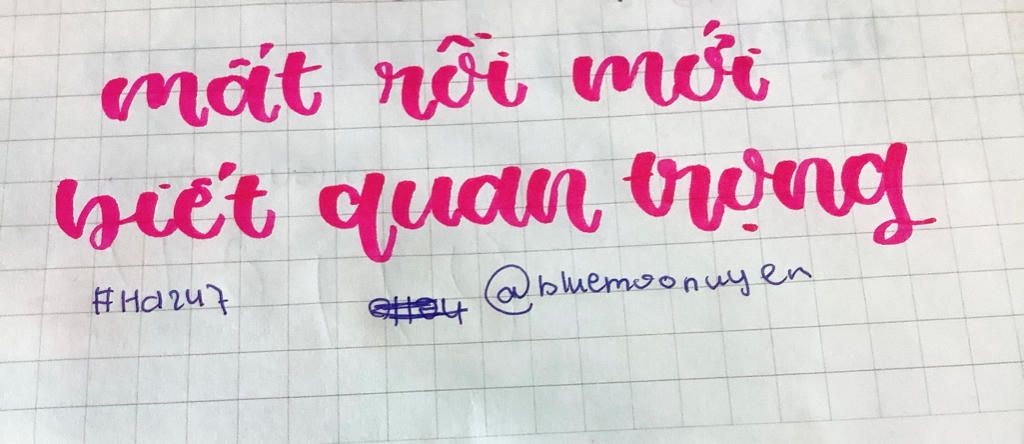 mất rồi mới
biết quan trọng
#Hd247 @bluemoonuyen